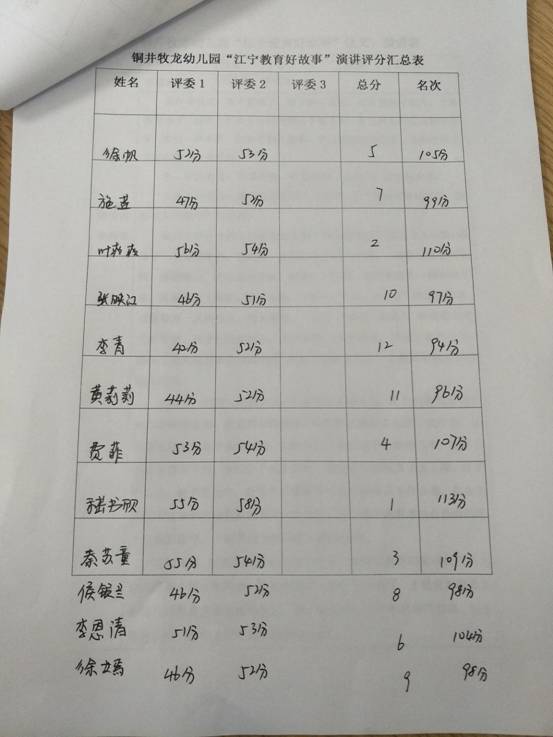 铜井牧龙幼儿园“江宁教育好故事”演讲评分汇总表
姓名 评委1 评委2 评委3 总分 名次
徐帆 52分 53分 5 105分
施蓝 47分 52分 7 99分
叶莉莉 56分 54分 2 110分
张 江 46分 51分 10 97分
李青 42分 52分 12 94分
黄莉莉 44分 52分 11 96分
费菲 53分 54分 4 107分
书欣 55分 58分 1 113分
秦苏童 55分 54分 3 109分
侯银兰 46分 52分 8 98分
李恩清 51分 53分 6 104分
徐 46分 52分 9 98分